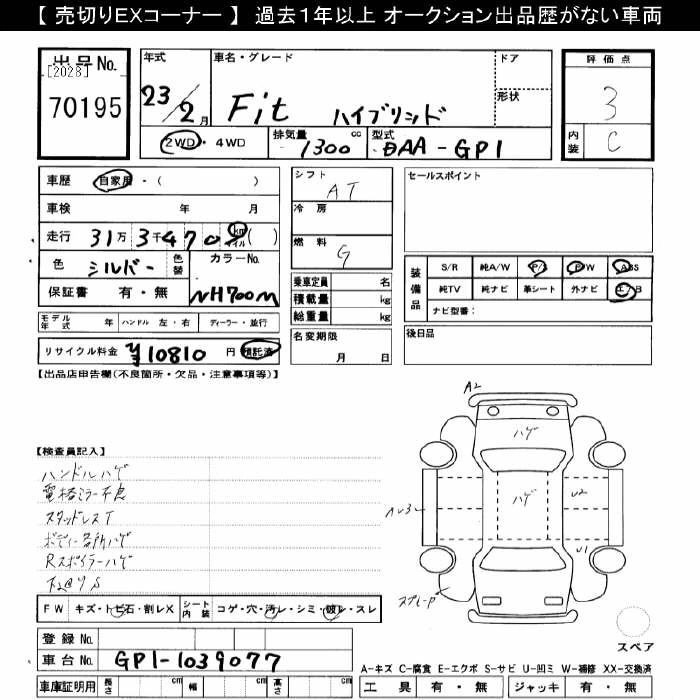 【 売切りEXコーナー 】 過去1年以上 オークション出品歴がない車両
出品No.
[2028]
70195
年式
23/2月
車名・グレード
Fit ハイブリッド
ドア
形状
評価点
3
内装
C
2WD・4WD
排気量
1300 cc
型式
DAA-GP1
車歴 自家用・( )
車検 年 月
走行 31万3千470 km マイル ( )
色 シルバー 色替
カラーNo.
NH700M
保証書 有・無
モデル年式 年 ハンドル 左・右 ディーラー・並行
リサイクル料金 ¥10810 円 預託済
シフト
AT
冷房
燃料
G
乗車定員 名
積載量 kg
総重量 kg
名変期限
月 日
セールスポイント
装備品
S/R 純A/W P/S P/W ABS
純TV 純ナビ 革シート 外ナビ エ/B
ナビ型番:
後日品
【出品店申告欄(不良箇所・欠品・注意事項等)】
【検査員記入】
ハンドルハゲ
電格ミラー不良
スタッドレスT
ボディー各所ハゲ
Rスポイラーハゲ
下回りS
FW キズ・トビ石・割レX シート内装 コゲ・穴・汚レ・シミ・破レ・スレ
登録No.
車台No. GP1-1039077
車庫証明用 長さ cm 幅 cm 高さ cm
A2
ハゲ
ハゲ
U2
U3
U1
スプレーP
スペア
A-キズ C-腐食 E-エクボ S-サビ U-凹ミ W-補修 XX-交換済
工具 有・無 ジャッキ 有・無